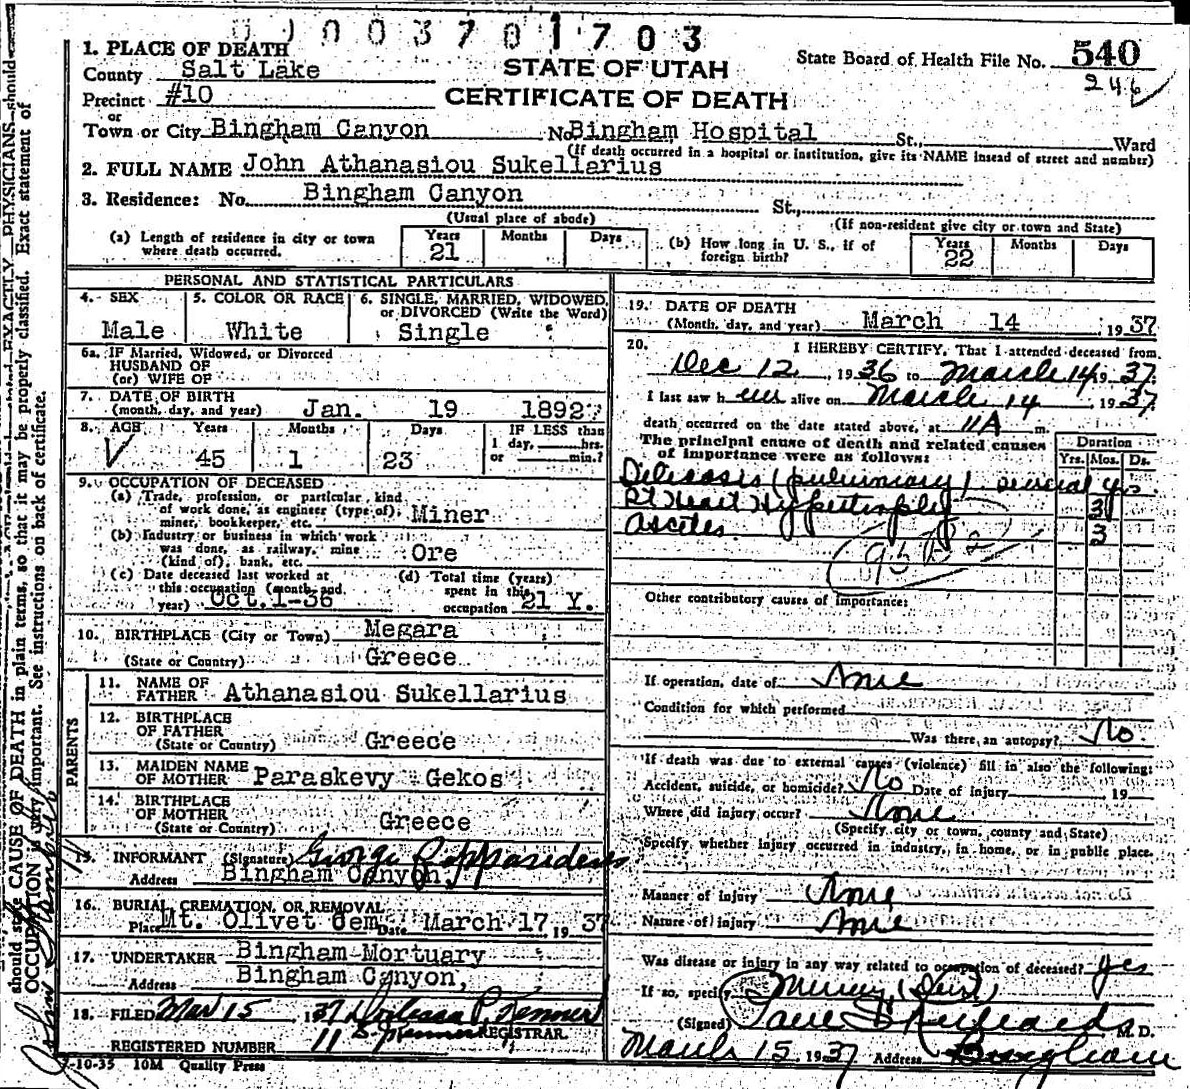 0003701703
1. PLACE OF DEATH
County Salt Lake
Precinct #10
or
Town or City Bingham Canyon No. Bingham Hospital St., Ward
(If death occurred in a hospital or institution, give its NAME instead of street and number)
STATE OF UTAH
CERTIFICATE OF DEATH
State Board of Health File No. 540
246
2. FULL NAME John Athanasiou Sukellarius
3. Residence: No. Bingham Canyon St.,
(Usual place of abode) (If non-resident give city or town and State)
(a) Length of residence in city or town where death occurred. Years 21 Months Days
(b) How long in U. S., if of foreign birth? Years 22 Months Days
PERSONAL AND STATISTICAL PARTICULARS
4. SEX Male
5. COLOR OR RACE White
6. SINGLE, MARRIED, WIDOWED, or DIVORCED (Write the Word) Single
6a. IF Married, Widowed, or Divorced
HUSBAND OF
(or) WIFE OF
7. DATE OF BIRTH
(month, day, and year) Jan. 19 1892?
8. AGE Years 45 Months 1 Days 23 IF LESS than 1 day, hrs. or min.?
9. OCCUPATION OF DECEASED
(a) Trade, profession, or particular kind of work done, as engineer (type of), miner, bookkeeper, etc. Miner
(b) Industry or business in which work was done, as railway, mine (kind of), bank, etc. Ore
(c) Date deceased last worked at this occupation (month and year) Oct. 1-36
(d) Total time (years) spent in this occupation 21 Y.
10. BIRTHPLACE (City or Town) Megara
(State or Country) Greece
PARENTS
11. NAME OF FATHER Athanasiou Sukellarius
12. BIRTHPLACE OF FATHER
(State or Country) Greece
13. MAIDEN NAME OF MOTHER Paraskevy Gekos
14. BIRTHPLACE OF MOTHER
(State or Country) Greece
15. INFORMANT (Signature) George
Address Bingham Canyon,
16. BURIAL, CREMATION, OR REMOVAL
Place Mt. Olivet Cem. Date March 17, 1937
17. UNDERTAKER Bingham Mortuary
Address Bingham Canyon,
18. FILED Mar 15 1937
REGISTRAR
REGISTERED NUMBER 11
7-10-35 10M Quality Press
19. DATE OF DEATH
(Month, day, and year) March 14 1937
20. I HEREBY CERTIFY, That I attended deceased from
Dec 12, 1936 to March 14 1937.
I last saw him alive on March 14 1937
death occurred on the date stated above, at 11A m.
The principal cause of death and related causes of importance were as follows:
Duration
Yrs. Mos. Ds.
Silicosis (pulmonary) several yrs.
Rt Heart Hypertrophy 3
Ascites. 3
Other contributory causes of importance:
If operation, date of None
Condition for which performed
Was there an autopsy? No
If death was due to external causes (violence) fill in also the following:
Accident, suicide, or homicide? No Date of injury 19
Where did injury occur? None
(Specify city or town, county and State)
Specify whether injury occurred in industry, in home, or in public place.
Manner of injury None
Nature of injury None
Was disease or injury in any way related to occupation of deceased? Yes
If so, specify Mining (Dust)
(Signed) Paul S Richards M.D.
March 15 1937 Address Bingham
should state CAUSE OF DEATH in plain terms, so that it may be properly classified. Exact statement of
OCCUPATION is very important. See instructions on back of certificate.